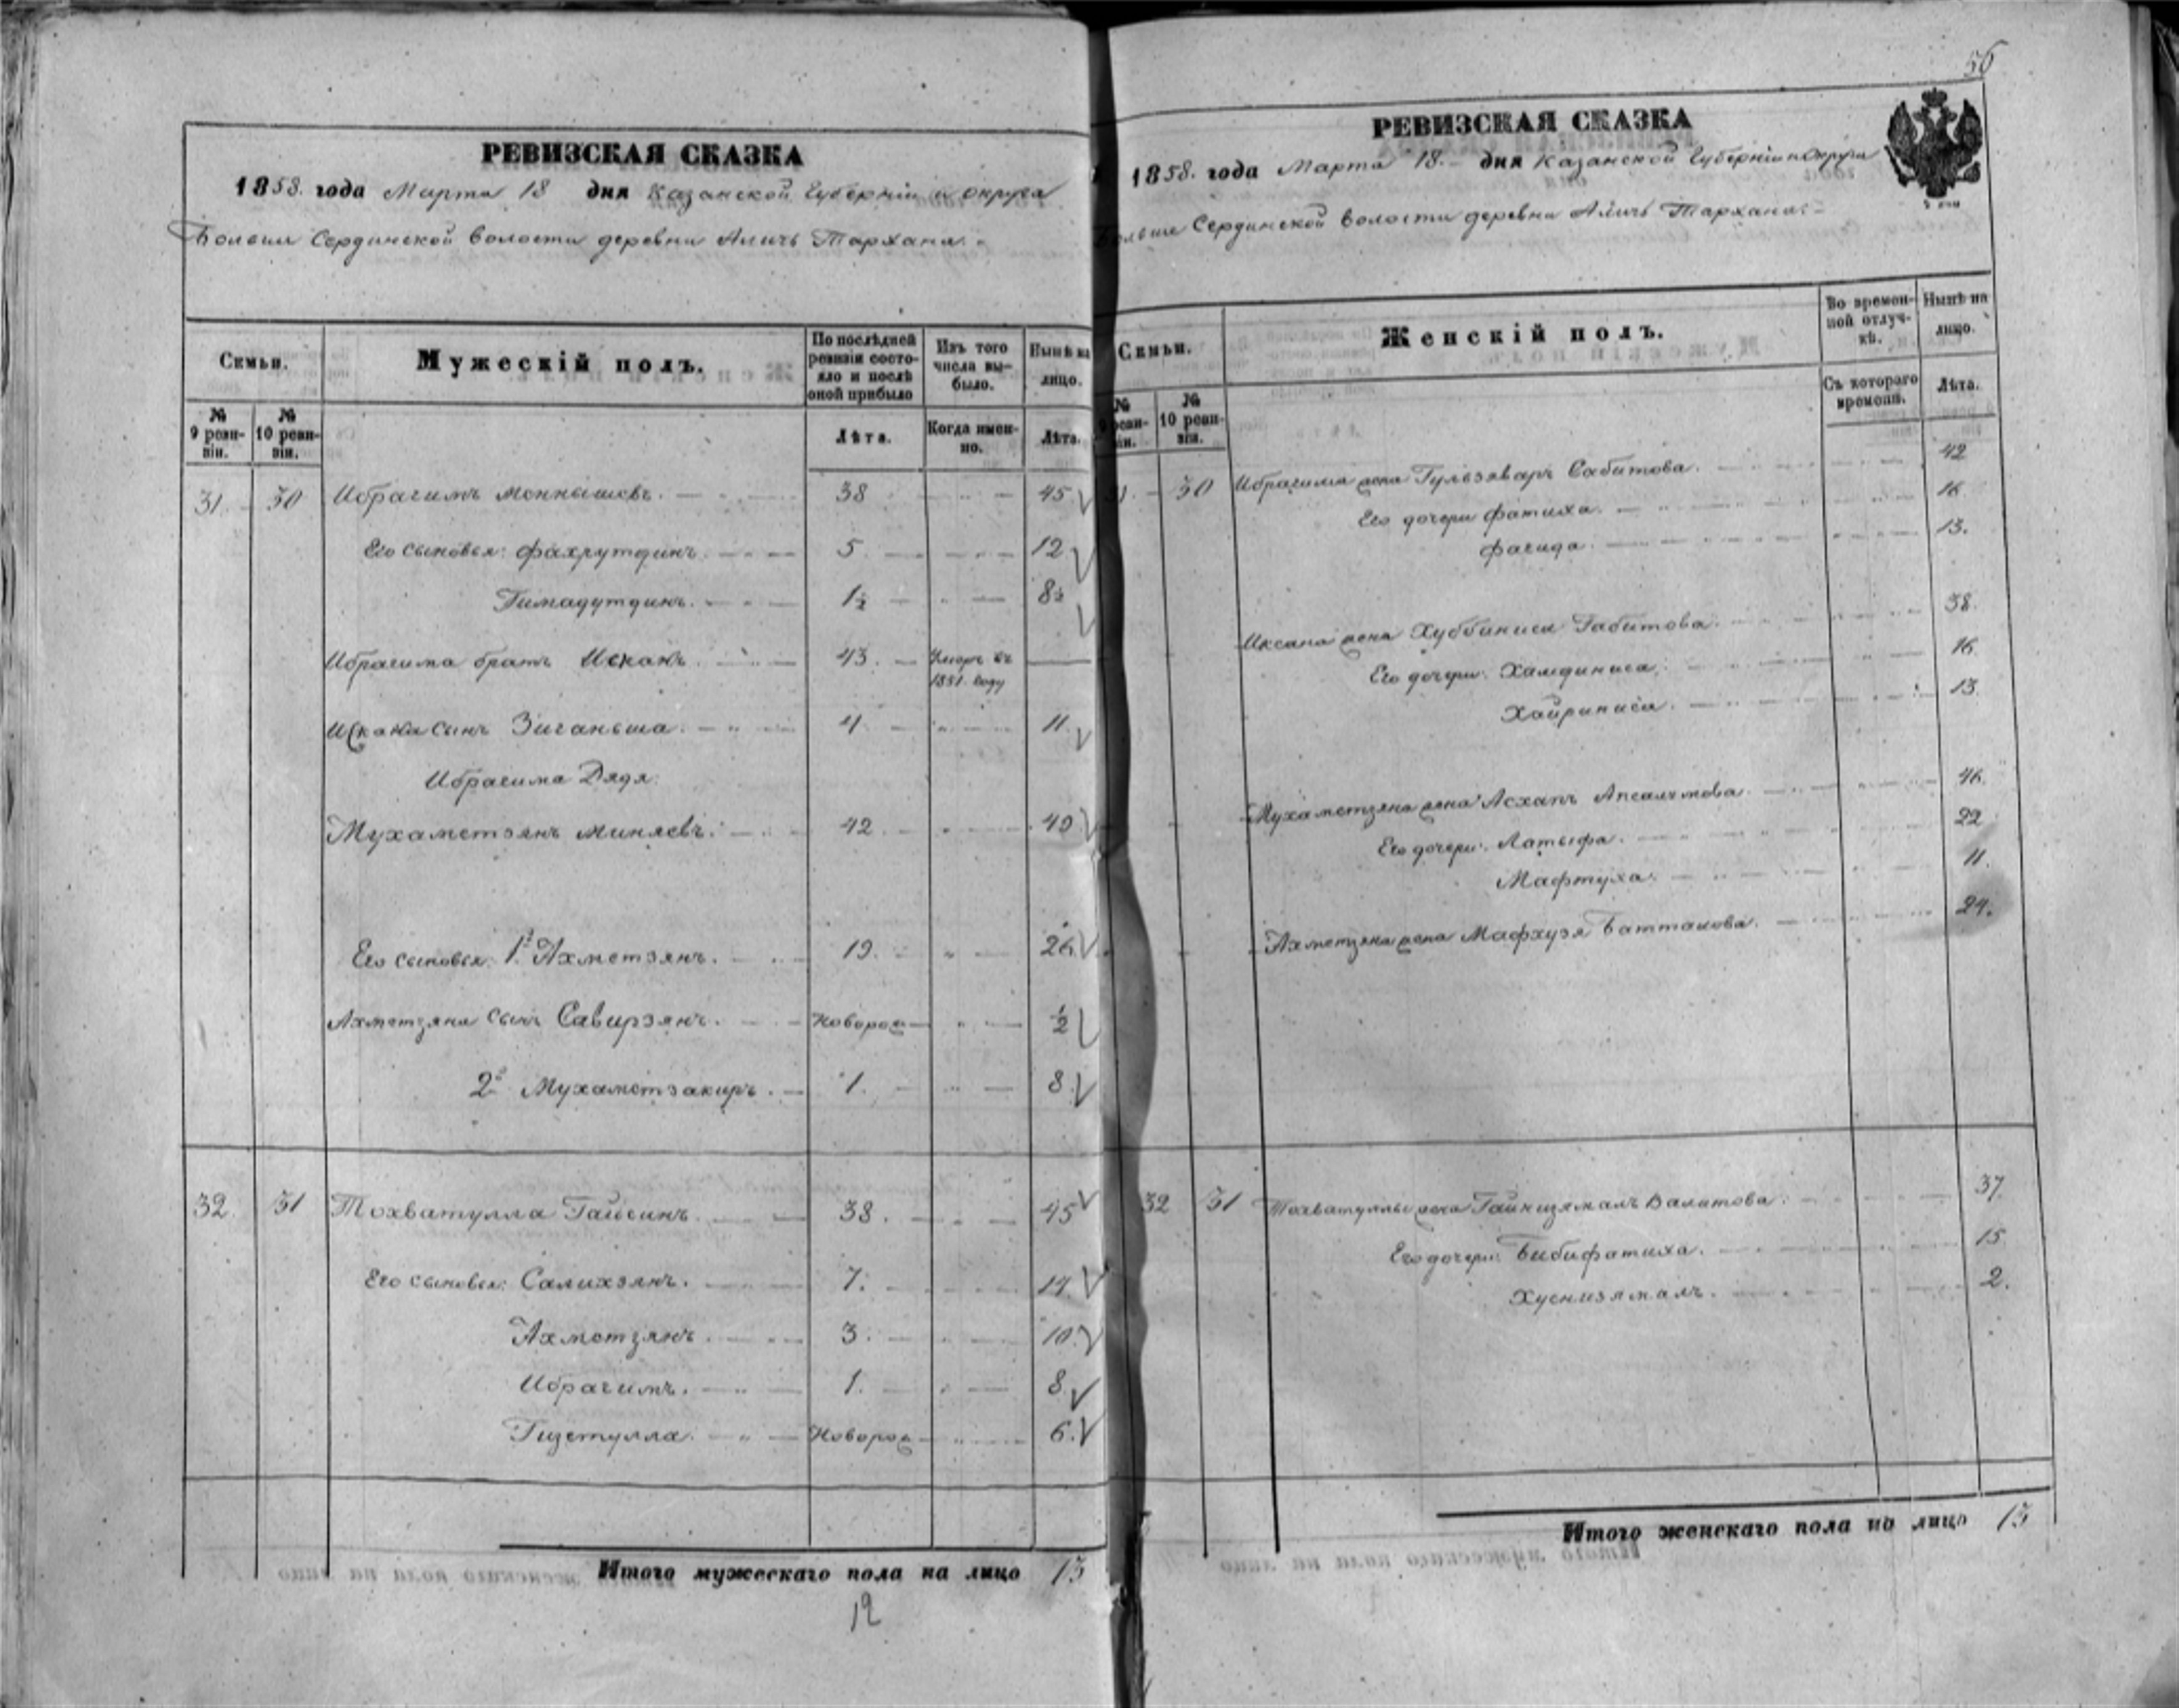 56
РЕВИЗСКАЯ СКАЗКА
1858. года Марта 18 дня Казанской Губерніи и округа
Больше Сердинской волости деревни Аличь Тархана.
Семьи.
Мужескій полъ.
По послѣдней ревизіи состояло и послѣ оной прибыло
Изъ того числа выбыло.
Нынѣ на лицо.
№ 9 ревизіи.
№ 10 ревизіи.
Лѣта.
Когда именно.
Лѣта.
31. 30 Ибрагимъ Монкышевъ. 38 45
Его сыновья: Фахрутдинъ. 5 12
Гимадутдинъ. 1½ 8½
Ибрагима братъ Искакъ. 43. Умеръ въ 1851. году
Искака сынъ Зиганьша. 4 11
Ибрагима Дядя:
Мухаметзянъ Миняевъ. 42 49
Его сыновья: 1й Ахметзянъ. 19. 26
Ахметзяна сынъ Сабирзянъ. Новорож ½
2й Мухаметзакиръ. 1. 8
32. 31 Тохватулла Гайсинъ. 38. 45
Его сыновья: Салихзянъ. 7. 14
Ахметзянъ. 3. 10
Ибрагимъ. 1. 8
Гизетулла. Новорож 6.
Итого мужескаго пола на лицо 13
12
РЕВИЗСКАЯ СКАЗКА
1858. года Марта 18. дня Казанской Губерніи и округа
Больше Сердинской волости деревни Аличь Тархана.
Семьи.
Женскій полъ.
Во временной отлучкѣ.
Нынѣ на лицо.
№ 9 ревизіи.
№ 10 ревизіи.
Съ котораго времени.
Лѣта.
31. 30 Ибрагима жена Гульзяваръ Сабитова. 42
Его дочери Фатиха. 16
Фагида. 13.
Иксана жена Хуббиниса Габитова. 38.
Его дочери: Хамдиниса. 16.
Хайриниса. 13.
Мухаметзяна жена Асхапъ Апсалямова. 46.
Его дочери: Латыфа. 22
Мафтуха. 11.
Ахметзяна жена Мафхузя Баттанова. 24.
32 31 Тохватуллы жена Гайнизямалъ Валитова. 37.
Его дочери: Бибифатиха. 15
Хуснизямалъ. 2.
Итого женскаго пола на лицо 13